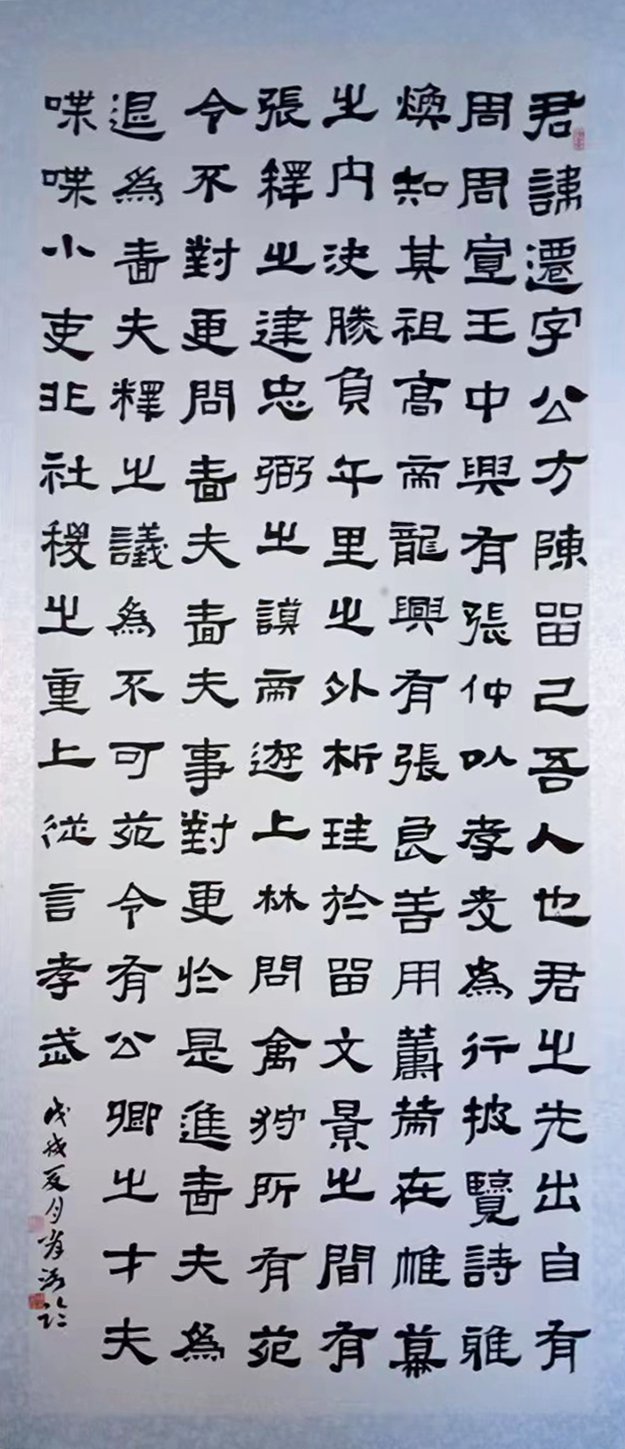 君諱遷字公方陳留己吾人也君之先出自有
周周宣王中興有張仲以孝友為行披覽詩雅
煥知其祖高帝龍興有張良善用籌策在帷幕
之內決勝負千里之外析珪於留文景之間有
張釋之建忠弼之謨帝遊上林問禽狩所有苑
令不對更問嗇夫嗇夫事對更於是進嗇夫為
退為嗇夫釋之議為不可苑令有公卿之才夫
喋喋小吏非社稷之重上從言孝武
戊戌夏月